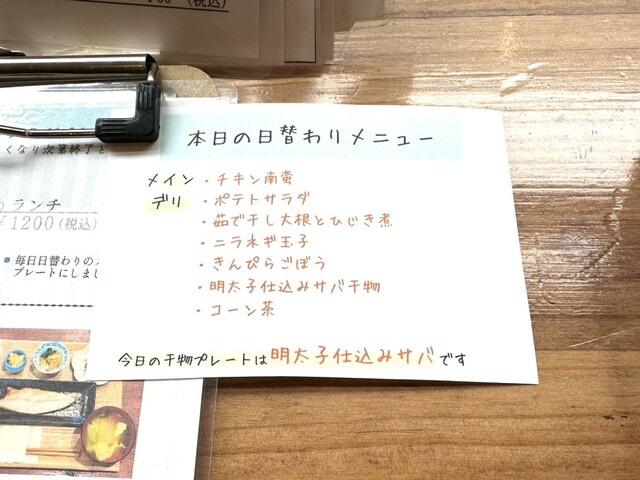 (税込)
本日の日替わりメニュー
メイン・チキン南蛮
デリ・ポテトサラダ
・茹で干し大根とひじき煮
・ニラネギ玉子
・きんぴらごぼう
・明太子仕込みサバ干物
・コーン茶
今日の干物プレートは明太子仕込みサバです
くなり次第終了と
ランチ
¥1200(税込)
●毎日日替わりの
プレートにしまし